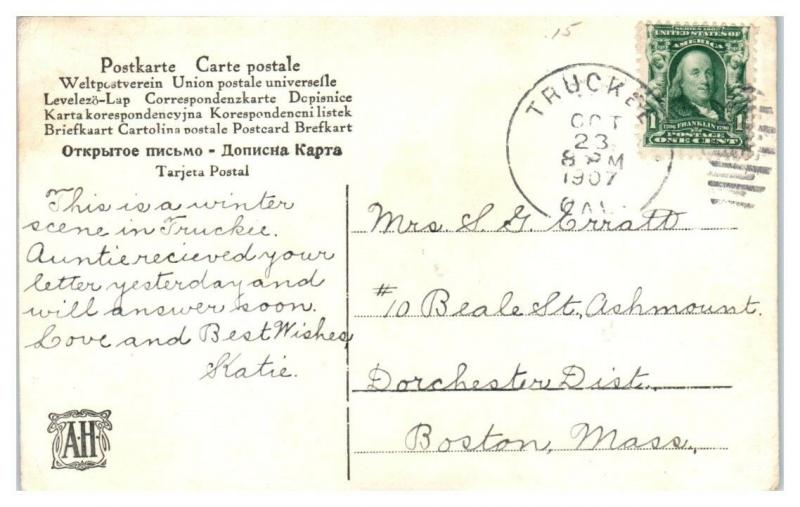 .15
Postkarte Carte postale
Weltpostverein Union postale universelle
Levelező-Lap Correspondenzkarte Dopisnice
Karta korespondencyjna Korespondencni listek
Briefkaart Cartolina postale Postcard Brefkart
Открытое письмо - Дописна Карта
Tarjeta Postal
This is a winter
scene in Truckee.
Auntie recieved your
letter yesterday and
will answer soon.
Love and Best Wishes,
Katie.
A·H
TRUCKEE
OCT
23
8 PM
1907
CAL.
SERIES 1902
UNITED STATES OF
AMERICA
1 FRANKLIN 1
POSTAGE
ONE CENT
Mrs. S. G. Erratt
#10 Beale St., Ashmount.
Dorchester Dist.,
Boston, Mass.,